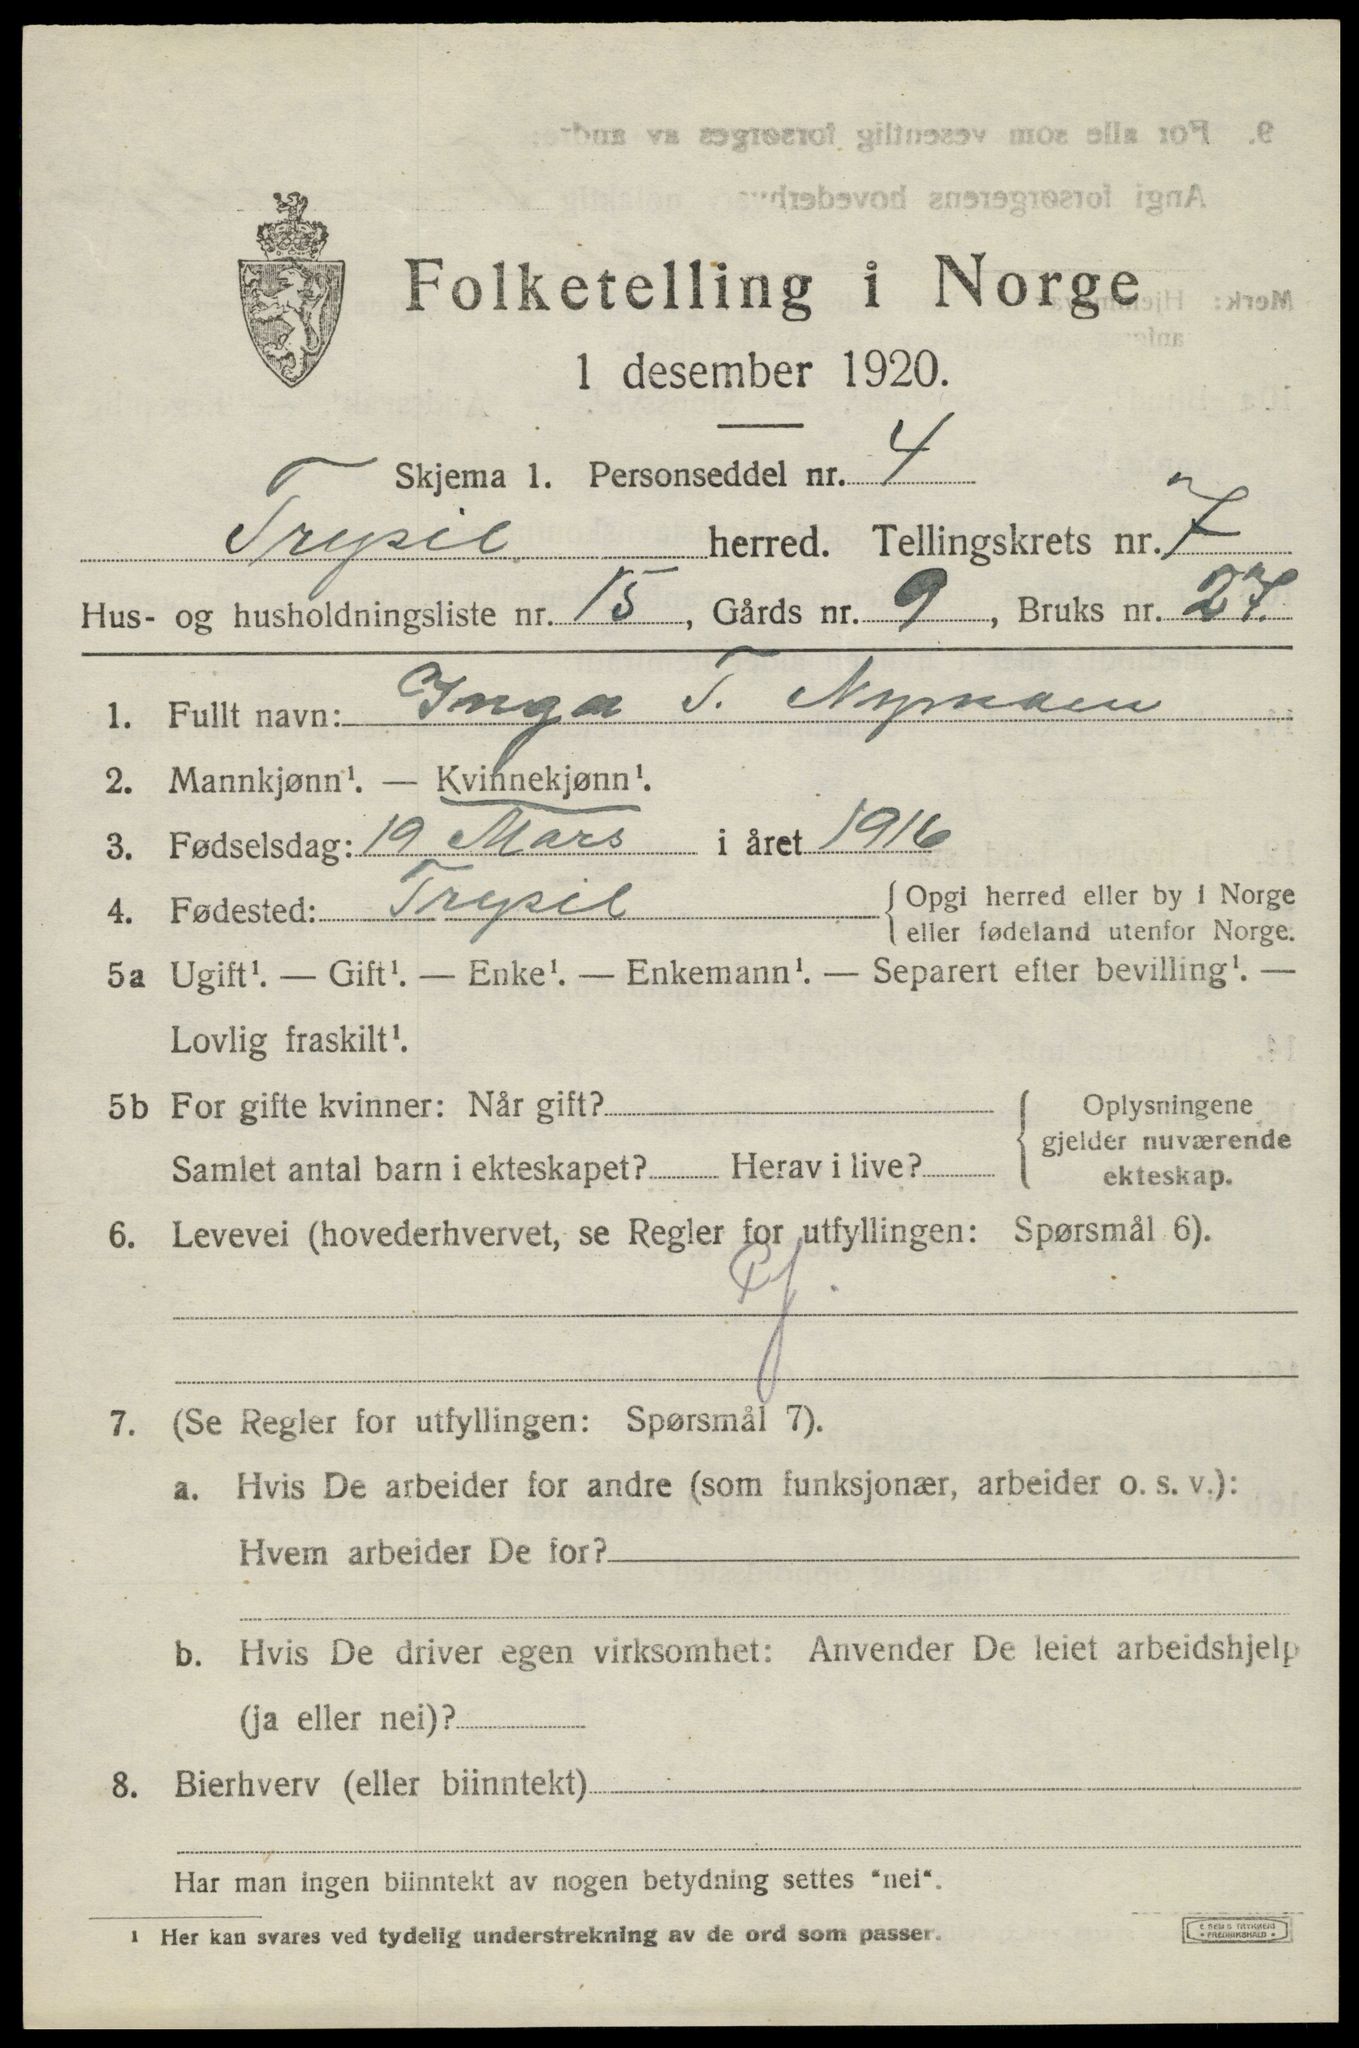 Folketelling i Norge
1 desember 1920.
Skjema 1. Personseddel nr. 4
Trysil herred. Tellingskrets nr. 7
Hus- og husholdningsliste nr. 15, Gårds nr. 9, Bruks nr. 27.
1. Fullt navn: Inga T. Nymoen
2. Mannkjønn¹. — Kvinnekjønn¹.
3. Fødselsdag: 19 Mars i året 1916
4. Fødested: Trysil {Opgi herred eller by i Norge
eller fødeland utenfor Norge.
5a Ugift¹. — Gift¹. — Enke¹. — Enkemann¹. — Separert efter bevilling¹. —
Lovlig fraskilt¹.
5b For gifte kvinner: Når gift? { Oplysningene
gjelder nuværende
Samlet antal barn i ekteskapet? Herav i live?
ekteskap.
6. Levevei (hovederhvervet, se Regler for utfyllingen: Spørsmål 6).
7. (Se Regler for utfyllingen: Spørsmål 7).
a. Hvis De arbeider for andre (som funksjonær, arbeider o. s. v.):
Hvem arbeider De for?
b. Hvis De driver egen virksomhet: Anvender De leiet arbeidshjelp
(ja eller nei)?
8. Bierhverv (eller biinntekt)
Har man ingen biinntekt av nogen betydning settes "nei".
¹ Her kan svares ved tydelig understrekning av de ord som passer.